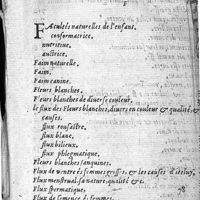 FAcultés naturelles de l'enfant,
conformatrice,
nutritiue,
auctrice.
Faim naturelle,
Faim,
Faim canine.
Fleurs blanches.
Fleurs blanches de diuerse couleur,
le flux des Fleurs blanches, diuers en couleur & qualité, &
causes,
flux roussastre,
flux blanc,
flux bilieux,
flux phlegmatique.
Fleurs blanches sanguines,
Flux de ventre és femmes grosses, & les causes d'iceluy,
Flux menstrual, sa nature, qualité &c.
Flux spermatique,
Flux de semence és femmes,